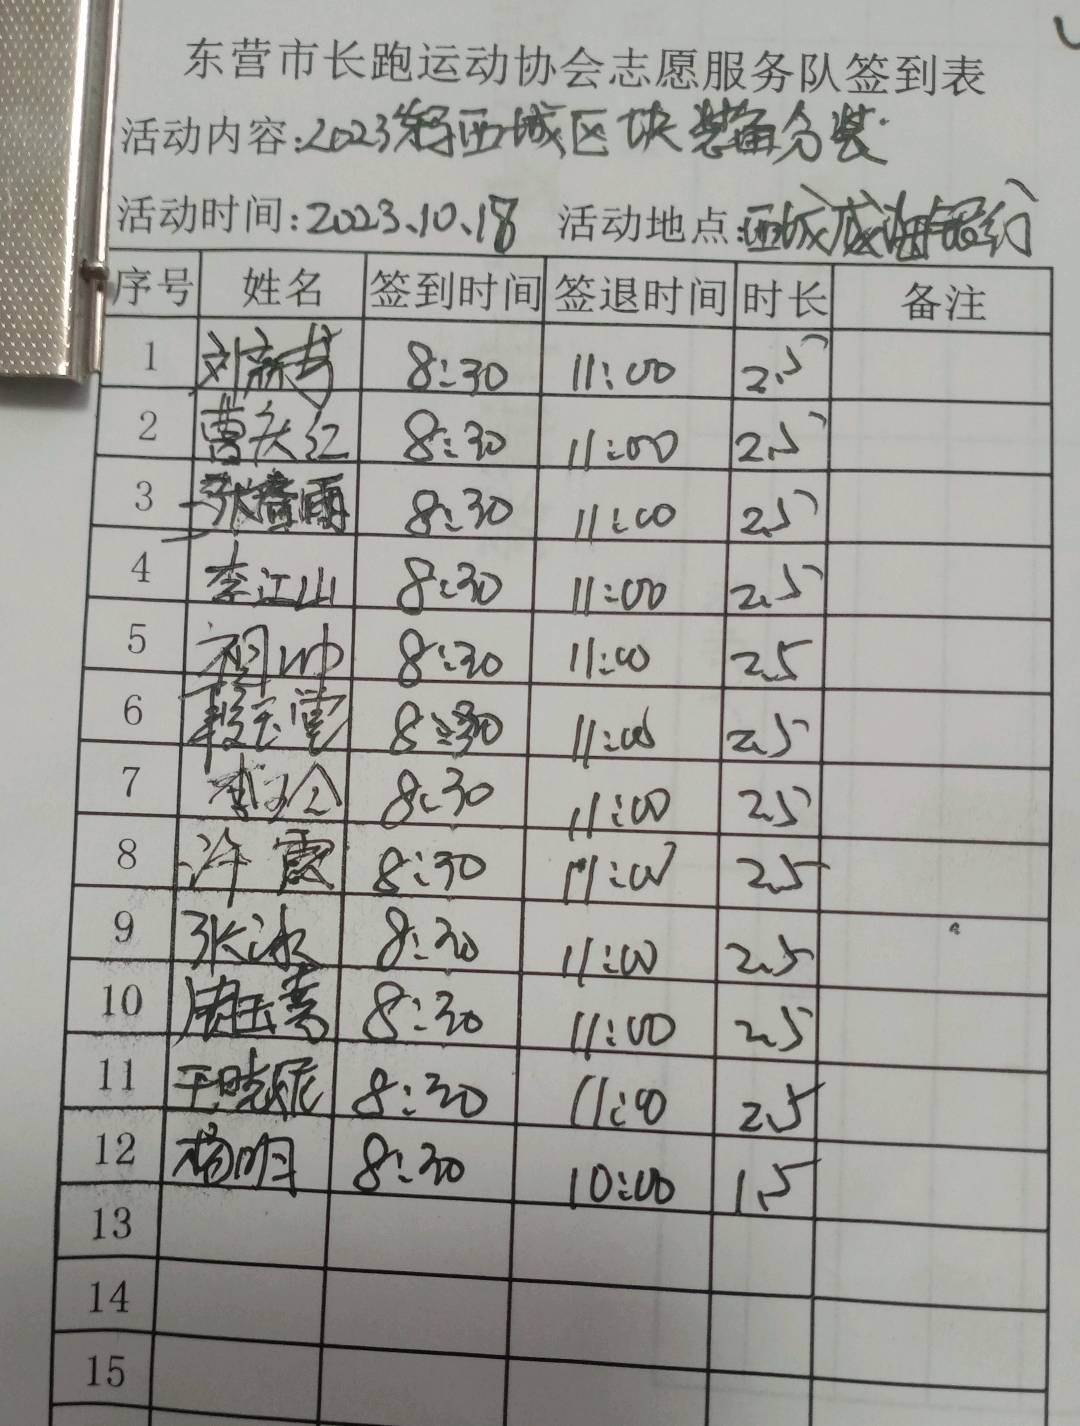 东营市长跑运动协会志愿服务队签到表
活动内容:2023 西城区块装备分装
活动时间:2023.10.18 活动地点:西城威海银行
序号 姓名 签到时间 签退时间 时长 备注
1 刘 8:30 11:00 2.5
2 曹庆红 8:30 11:00 2.5
3 张春雨 8:30 11:00 2.5
4 李江山 8:30 11:00 2.5
5 祖帅 8:30 11:00 2.5
6 段 8:30 11:00 2.5
7 李 8:30 11:00 2.5
8 许霞 8:30 11:00 2.5
9 张冰 8:30 11:00 2.5
10 玉 8:30 11:00 2.5
11 王晓妮 8:30 11:00 2.5
12 杨明 8:30 10:00 1.5
13
14
15